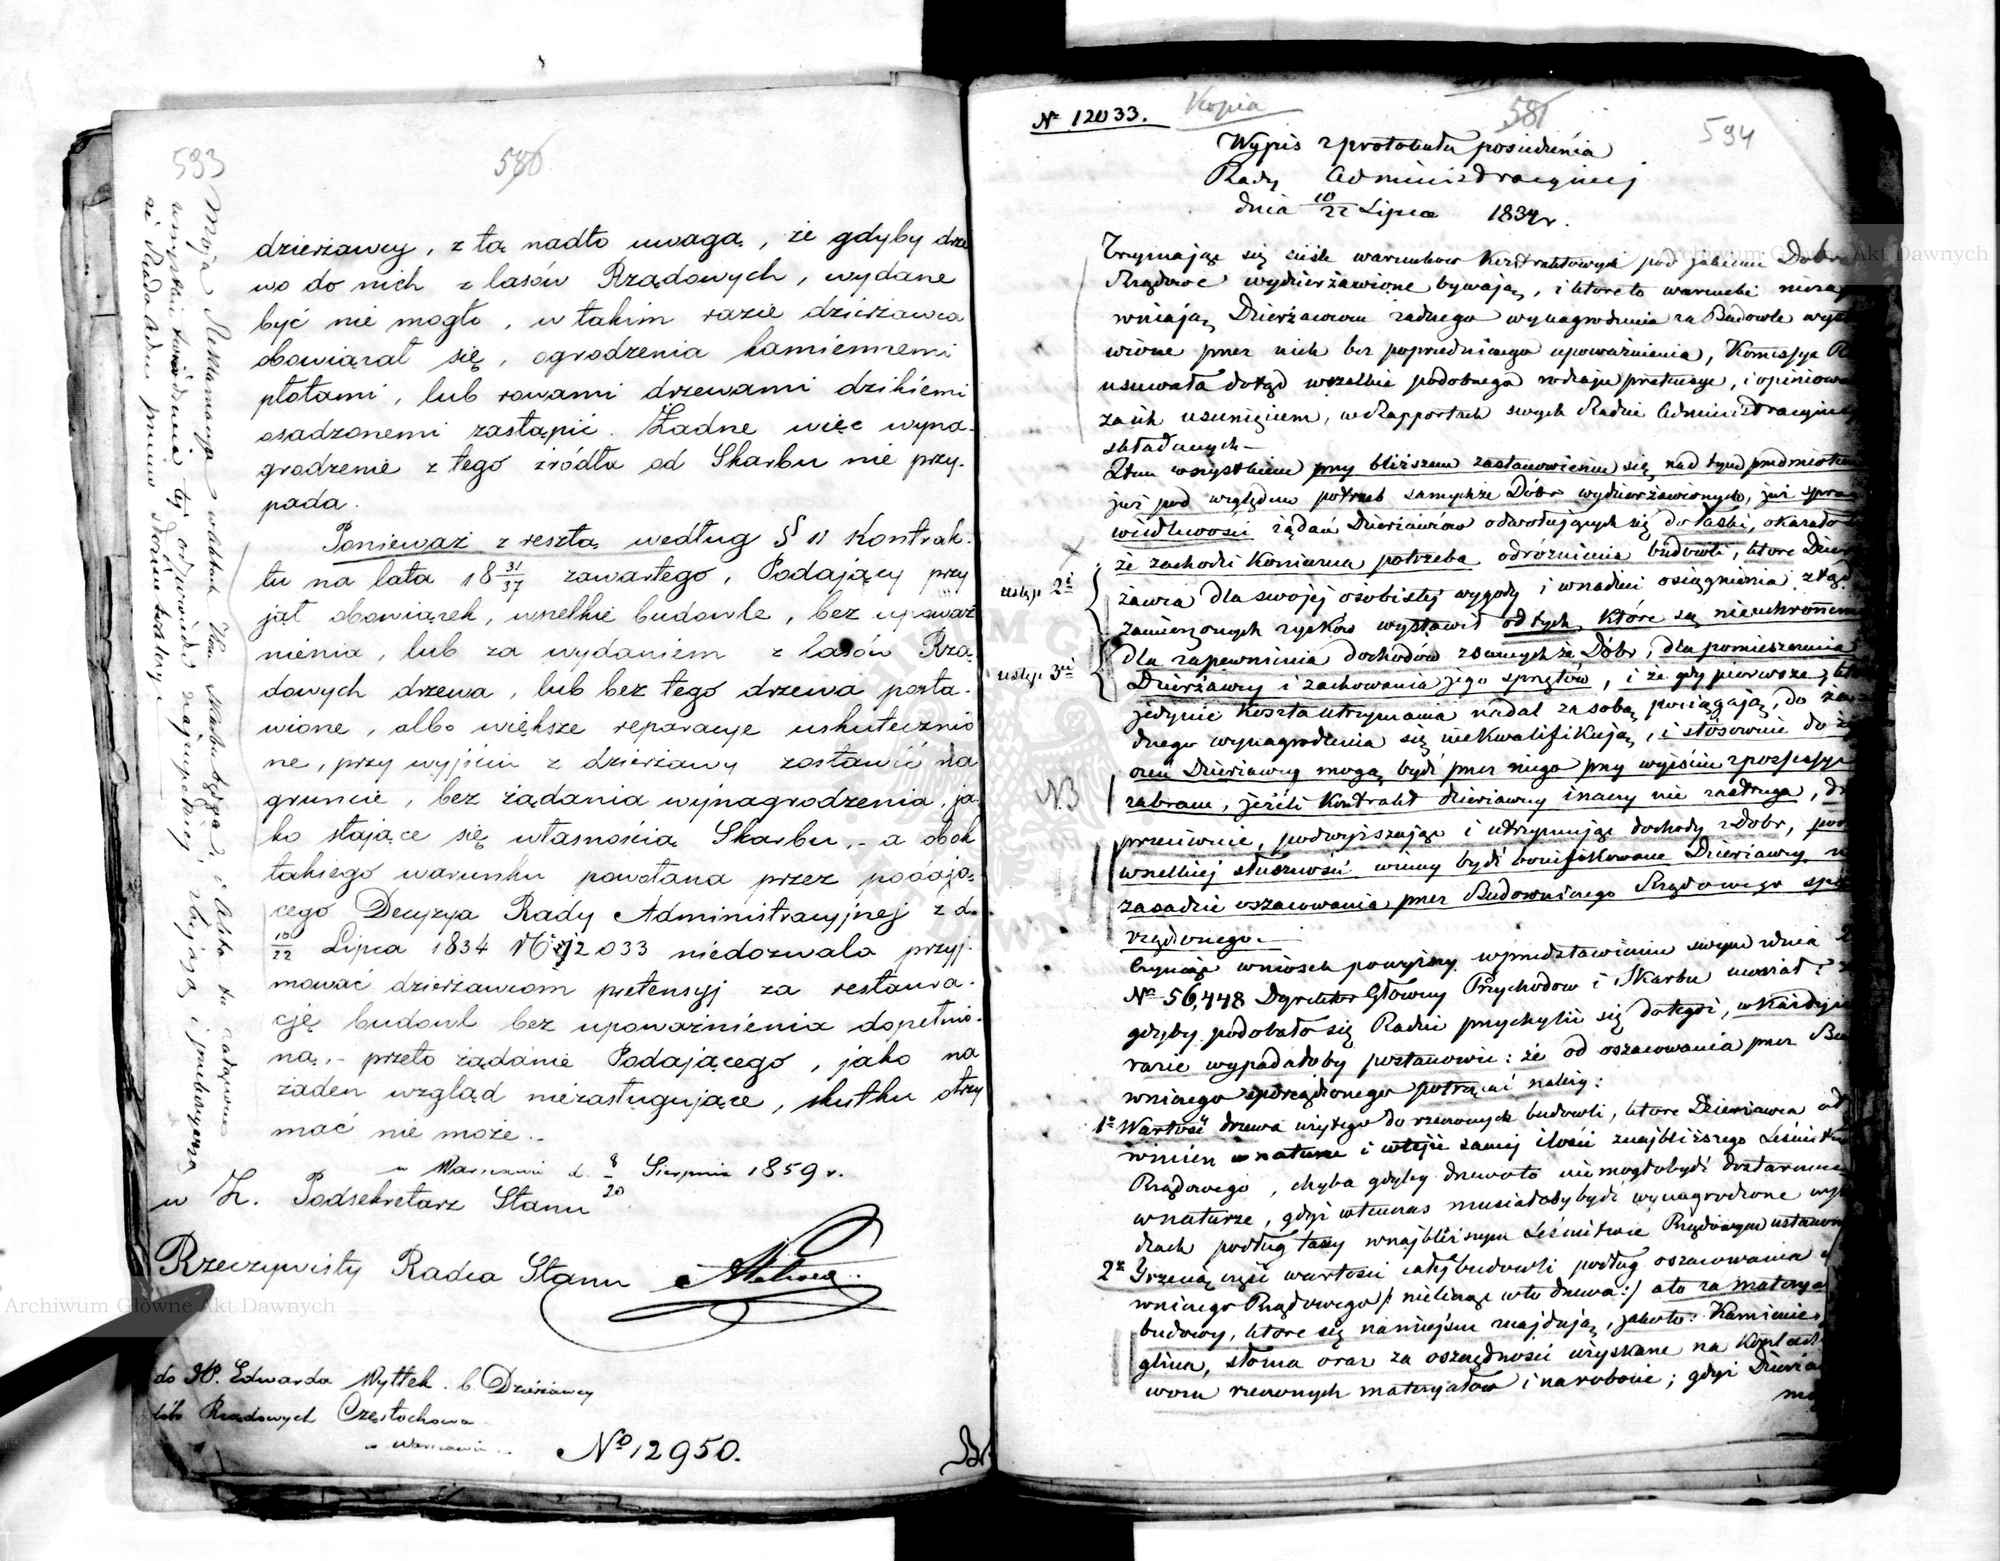 593
580
dzierżawcy, z tą nadto uwagą, że gdyby drze
wo do nich z lasów Rządowych, wydane
być nie mogło, w takim razie dzierżawca
obowiązał się, ogrodzenia kamiennemi
płotami, lub rowami drzewami dzikiemi
osadzonemi zastąpić. Żadne więc wyna-
grodzenie z tego źródła od Skarbu nie przy-
pada.
Ponieważ z resztą według § 11 Kontrak-
tu na lata 18 31/37 zawartego, Podający przy
jął obowiązek, wszelkie budowle, bez upoważ
nienia, lub za wydaniem z lasów Rzą-
dowych drzewa, lub bez tego drzewa posta-
wione, albo większe reparacye uskutecznio
ne, przy wyjściu z dzierżawy zostawić na
gruncie, bez żądania wynagrodzenia, ja-
ko stające się własnością Skarbu, - a obok
takiego warunku powołana przez podają-
cego Decyzya Rady Administracyjnej z d.
10/22 Lipca 1834 No 12033 niedozwala przyj-
mować dzierżawcom pretensyj za restaura-
cję budowl bez upoważnienia dopełnio-
ną, - przeto żądanie Podającego, jako na
żaden wzgląd niezasługujące, skutku otrzy
mać nie może.
w Warszawie d. 8/20 Sierpnia 1859 r.
w Z. Podsekretarz Stanu
Rzeczywisty Radca Stanu
do JP. Edwarda Wyttek b. Dzierżawcy
dóbr Rządowych Częstochowa
w Warszawie
No 12950.
Moja Reklamacya
że Rada Adm
No 12033.
Kopia
581
594
Wypis z protokułu posiedzenia
Rady Administracyjnej
dnia 10/22 Lipca 1834 r.
Trzymając się ściśle warunków Kontraktowych pod jakiemi Dobra
Rządowe wydzierżawione bywają, i które to warunki niezap
wniają Dzierżawcom żadnego wynagrodzenia za Budowle wysta
wione przez nich bez poprzedniczego upoważnienia, Kommissya R
usuwała dotąd wszelkie podobnego rodzaju pretensye, i opiniowa
za ich usunięciem, w Rapportach swych Radzie Administracyjnej
składanych -
Z tem wszystkiem przy bliższem zastanowieniu się nad tym przedmiotem
już pod względem potrzeb samychże Dóbr wydzierżawionych, już spra
wiedliwości żądań Dzierżawców odwołujących się do łaski, okazało
że zachodzi Konieczna potrzeba odróżnienia budowli, które Dzier
ustęp 2i
żawca dla swojej osobistej wygody i w nadziei osiągnienia ztąd
zamierzonych zysków wystawił od tych, które są nieuchronne
ustęp 3ci
dla zapewnienia dochodów z samychże Dóbr, dla pomieszczenia
Dzierżawcy i zachowania jego sprzętów, i że gdy pierwsze,
jedynie Koszta utrzymania nadal za sobą pociągają, do ża
dnego wynagrodzenia się niekwalifikują, i stosownie do ży
czeń Dzierżawcy mogą być przez niego przy wyjściu z possessyi
NB
zabrane, jeżeli Kontrakt dzierżawny inaczej nie zastrzega, dr
przeciwnie, podwyższając i utrzymując dochody z Dobr, pod
wszelkiej słuszności winny być bonifikowane Dzierżawcy
zasadzie oszacowania przez Budowniczego Rządowego spo
rządzonego. -
Czyniąc wniosek powyższy w przedstawieniu swym z dnia
No 56,448 Dyrektor Główny Przychodów i Skarbu uważał:
gdyby podobało się Radzie przychylić się do tegoż, w każdym
razie wypadałoby postanowić: że od oszacowania przez Bu
wniczego sporządzonego potrącać należy:
1e Wartość drzewa użytego do rzeczonych budowli, które Dzierżawca od
winien w naturze i w tejże samej ilości z najbliższego Leśnictwa
Rządowego, chyba gdyby drzewo to nie mogło być dostarczone
w naturze, gdyż wtenczas musiałoby być wynagrodzone
podług taxy w najbliższym Leśnictwie Rządowym ustanow
2e Trzecią część wartości całej budowli podług oszacowania
wniczego Rządowego /: nielicząc w to drzewa :/ a to za materya
budowy, które się na miejscu znajdują, jakoto: Kamienie
glina, słoma oraz za oszczędności uzyskane na Koszlach
wozu rzeczonych materyałów i na robocie; gdyż Dzierża
Archiwum Główne Akt Dawnych
Archiwum Główne Akt Dawnych